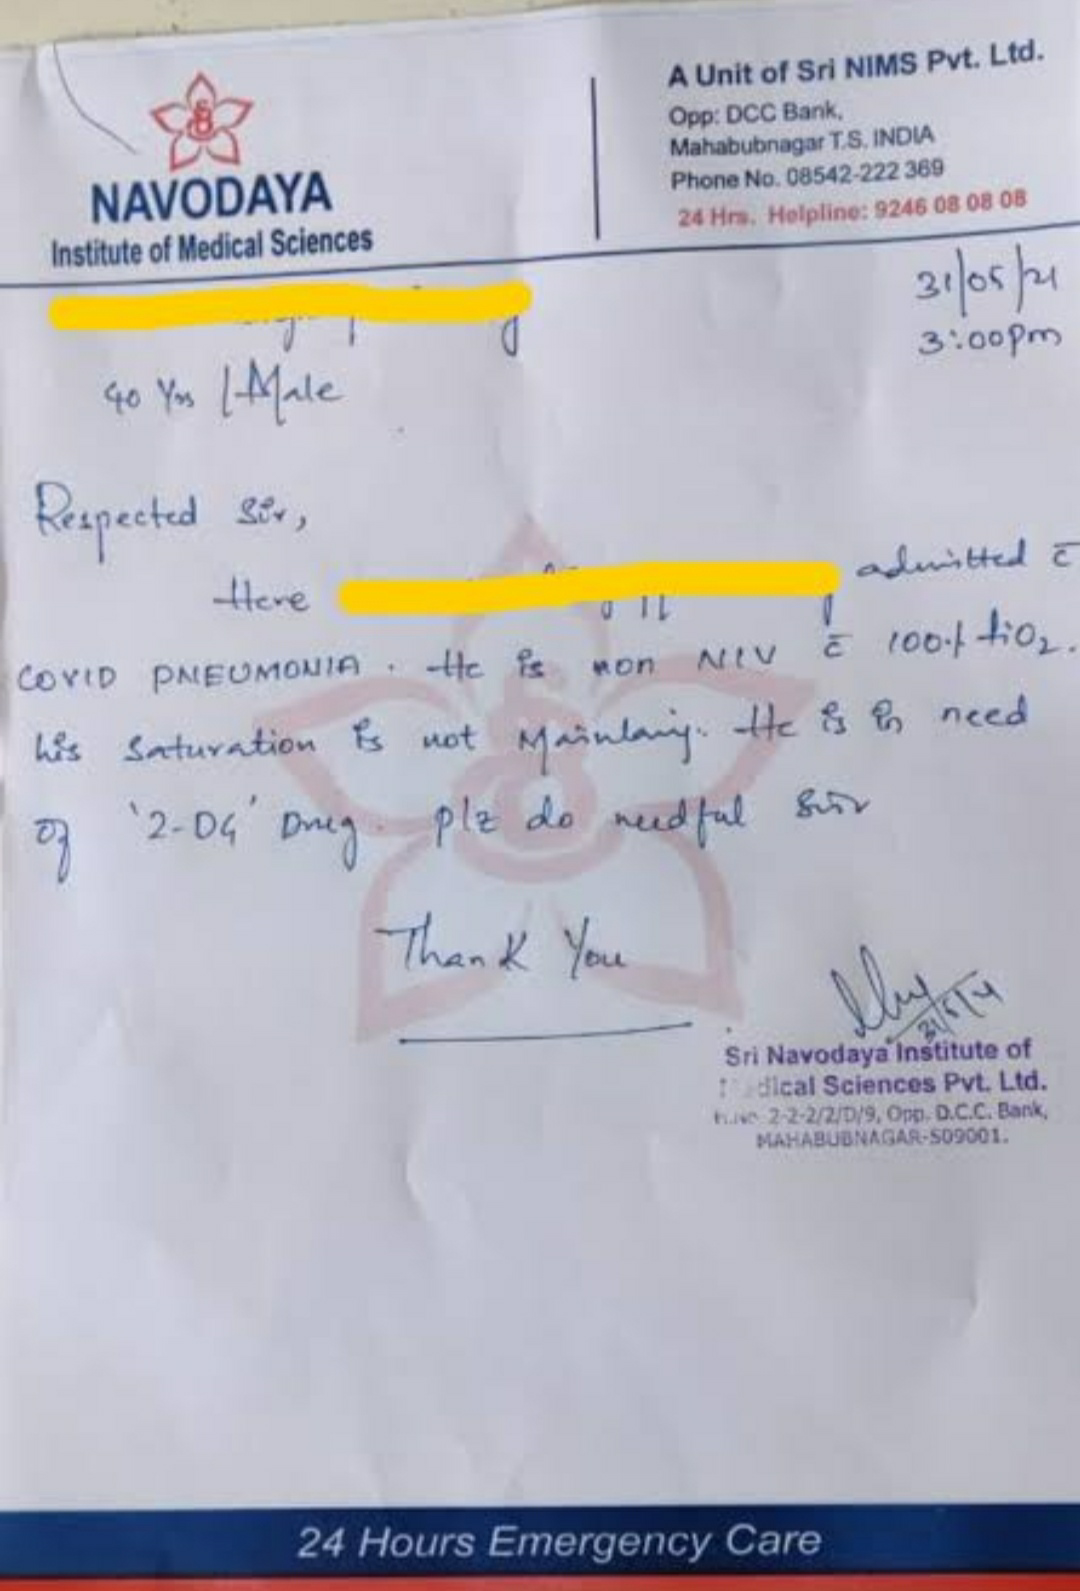 NAVODAYA
Institute of Medical Sciences
A Unit of Sri NIMS Pvt. Ltd.
Opp: DCC Bank,
Mahabubnagar T.S. INDIA
Phone No. 08542-222 369
24 Hrs. Helpline: 9246 08 08 08
31/05/21
3:00pm
40 Yrs / Male
Respected Sir,
Here admitted c̄
COVID PNEUMONIA. He is non NIV c̄ 100% fiO2.
his saturation is not Maintaing. He is in need
of '2-DG' Drug. Plz do needful Sir
Thank You
31/5/21
Sri Navodaya Institute of
dical Sciences Pvt. Ltd.
H.No. 2-2-2/2/D/9, Opp. D.C.C. Bank,
MAHABUBNAGAR-509001.
24 Hours Emergency Care